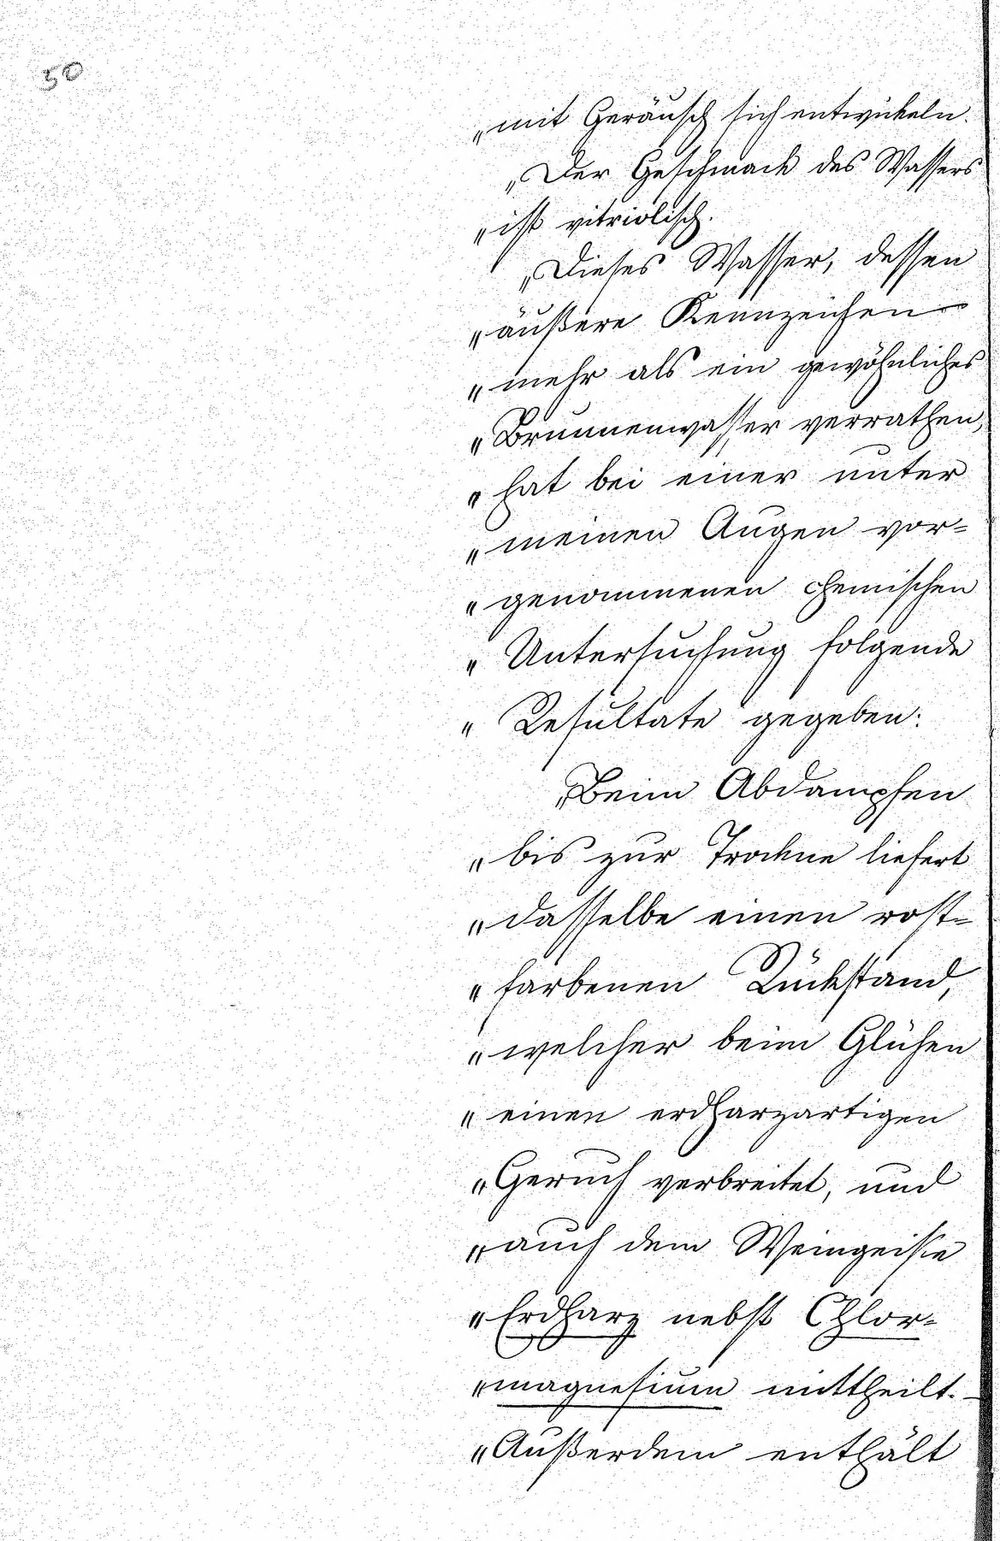 50
„mit Geräusch sich entwickeln.
„Der Geschmack des Wassers
„ist vitriolisch.
„Dieses Wasser, dessen
„äußere Kennzeichen
„mehr als ein gewöhnliches
„Brunnenwasser verrathen,
„hat bei einer unter
„meinen Augen vor-
„genommenen chemischen
„Untersuchung folgende
„Resultate gegeben:
„Beim Abdampfen
„bis zur Trockne liefert
„dasselbe einen rost-
„farbenen Rückstand,
„welcher beim Glühen
„einen erdharzartigen
„Geruch verbreitet, und
„auch dem Weingeiste
„Erdharz nebst Chlor-
„magnesium mittheilt. –
„Außerdem enthält